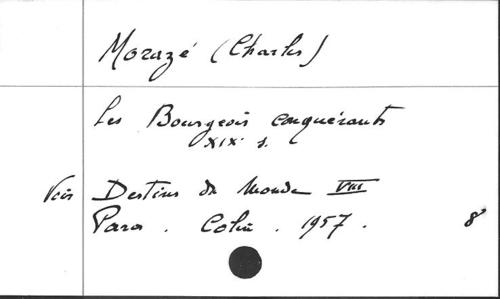 Morazé (Charles)
Les Bourgeois conquérants
XIXe s.
Voir Destins du Monde VIII
Paris . Colin . 1957 . 8°